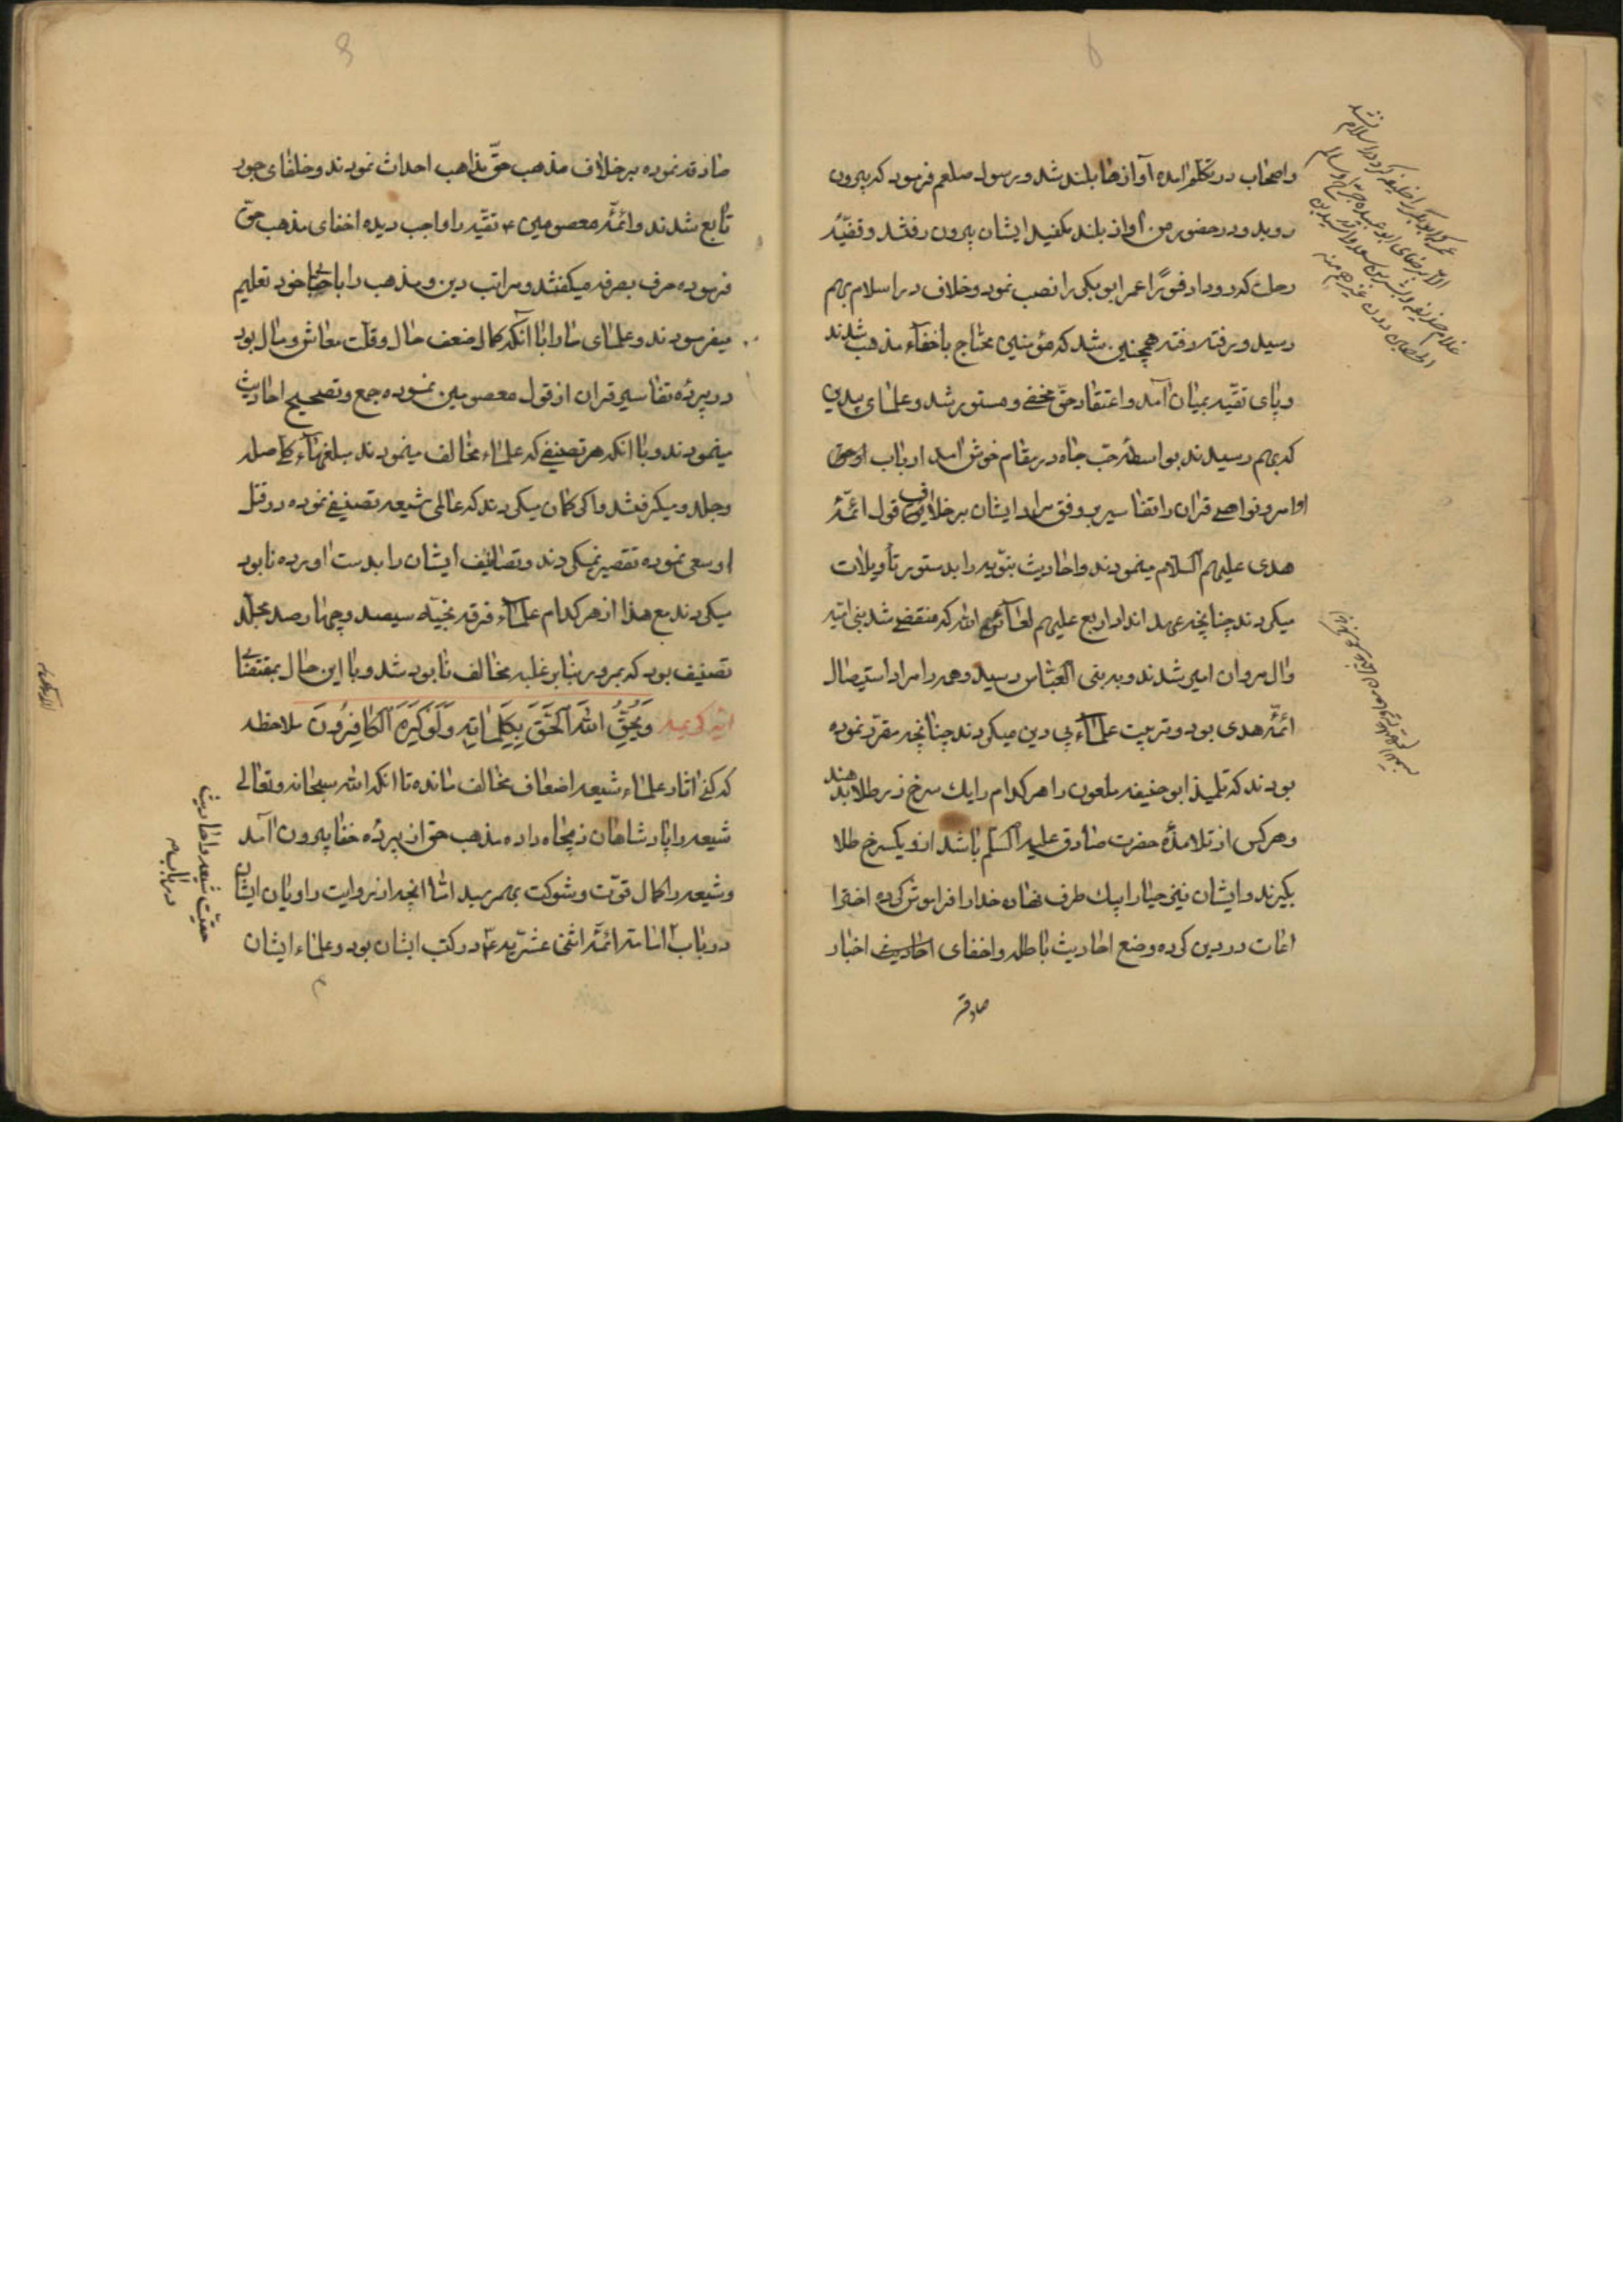 واصحاب در تکلم امده آوازها بلند شد و رسول صلعم فرمود که بیرون
روید و در حضور من آواز بلند مکنید ایشان بیرون رفتند و قضیّهٔ
رحلت که رو داد فورًا عمر ابوبکر را نصب نمود و خلاف در اسلام بهم
رسید و رفته رفته همچنین شد که مؤمنین محتاج باخفآء مذهب شدند
و پای تقیّه بمیان آمد و اعتقاد حقّ مخفی و مستور شد و علمای بیدین
که بهم رسیدند بواسطهٔ حبّ جاه در مقام خوش آمد ارباب
اوامر و نواهی قران را تفاسیر بر وفق مراد ایشان بر خلاف قول ائمّهٔ
هدی علیهم السلام مینمودند و احادیث نبّویه را بدستور تأویلات
میکردند چنانچه عهد اندا اربع علیهم لعائن الله که منقضی شد بنی امیّه
وال مروان امیر شدند و به بنی العبّاس رسید و همه را مراد استیصال
ائمّه هدی بود و تربیت علمآء بی دین میکردند چنانچه مقرّر نموده
بودند که تلمیذ ابوحنیفه ملعون را هر کدام را یك سرخ زر طلا بدهند
و هر کس از تلامذهٔ حضرت صادق علیه السلم باشد ازو یکسرخ طلا
بگیرند و ایشان نیز حیا را بیك طرف نهاده خدا را فراموش کرده اخترا
اعات در دین کرده وضع احادیث باطله و اخفای احادیث اخبار
صادقه
صادقه نموده بر خلاف مذهب حقّ مذاهب احداث نمودند و خلفای جور
تابع شدند و ائمّهٔ معصومین ع تقیّه را واجب دیده اخفای مذهب حقّ
فرموده حرف بصرفه میگفتند و مراتب دین و مذهب را با خود تعلیم
میفرمودند و علمای ما را با آنکه کمال ضعف حال و قلّت معاش و مال بود
در پردٔه تفاسیر قران از قول معصومین نموده جمع و تصحیح احادیث
مینمودند و با انکه هر تصنیفی که علمآء مخالف مینمودند مبلغهآء کلّی صله
وجلدو میگرفتند و اگر گمان میکردند که عالمی شیعه تصنیفی نموده در قتل
او سعی نموده تقصیر نمیکردند و تصانیف ایشان را بدست اورده نابود
میکردند مع هذا از هر کدام علمآء فرقه نجیّه سیصد و چهارصد مجلّد
تصنیف بود که بمرور بنابر غلبه مخالف نابود شد و با این حال بمقتضای
ایه کریمه وَیُحِقُّ اللهُ الْحَقَّ بِکَلِمَاتِهِ وَلَوْ کَرِهَ الْکَافِرُونَ ملاحظه
که کنی اثار علمآء شیعه اضعاف مخالف مانده تا انکه الله سبحانه وتعالی
شیعه را پادشاهان ذیجاه داده مذهب حق از پردٔه خفا بیرون امد
و شیعه را کمال قوّت و شوکت بهمرسید امّا انچه از روایت راویان ایشان
در باب امامت ائمّه اثنی عشریّه ع در کتب ایشان بود و علمآء ایشان
حقیّت شیعه و احادیث
در باب